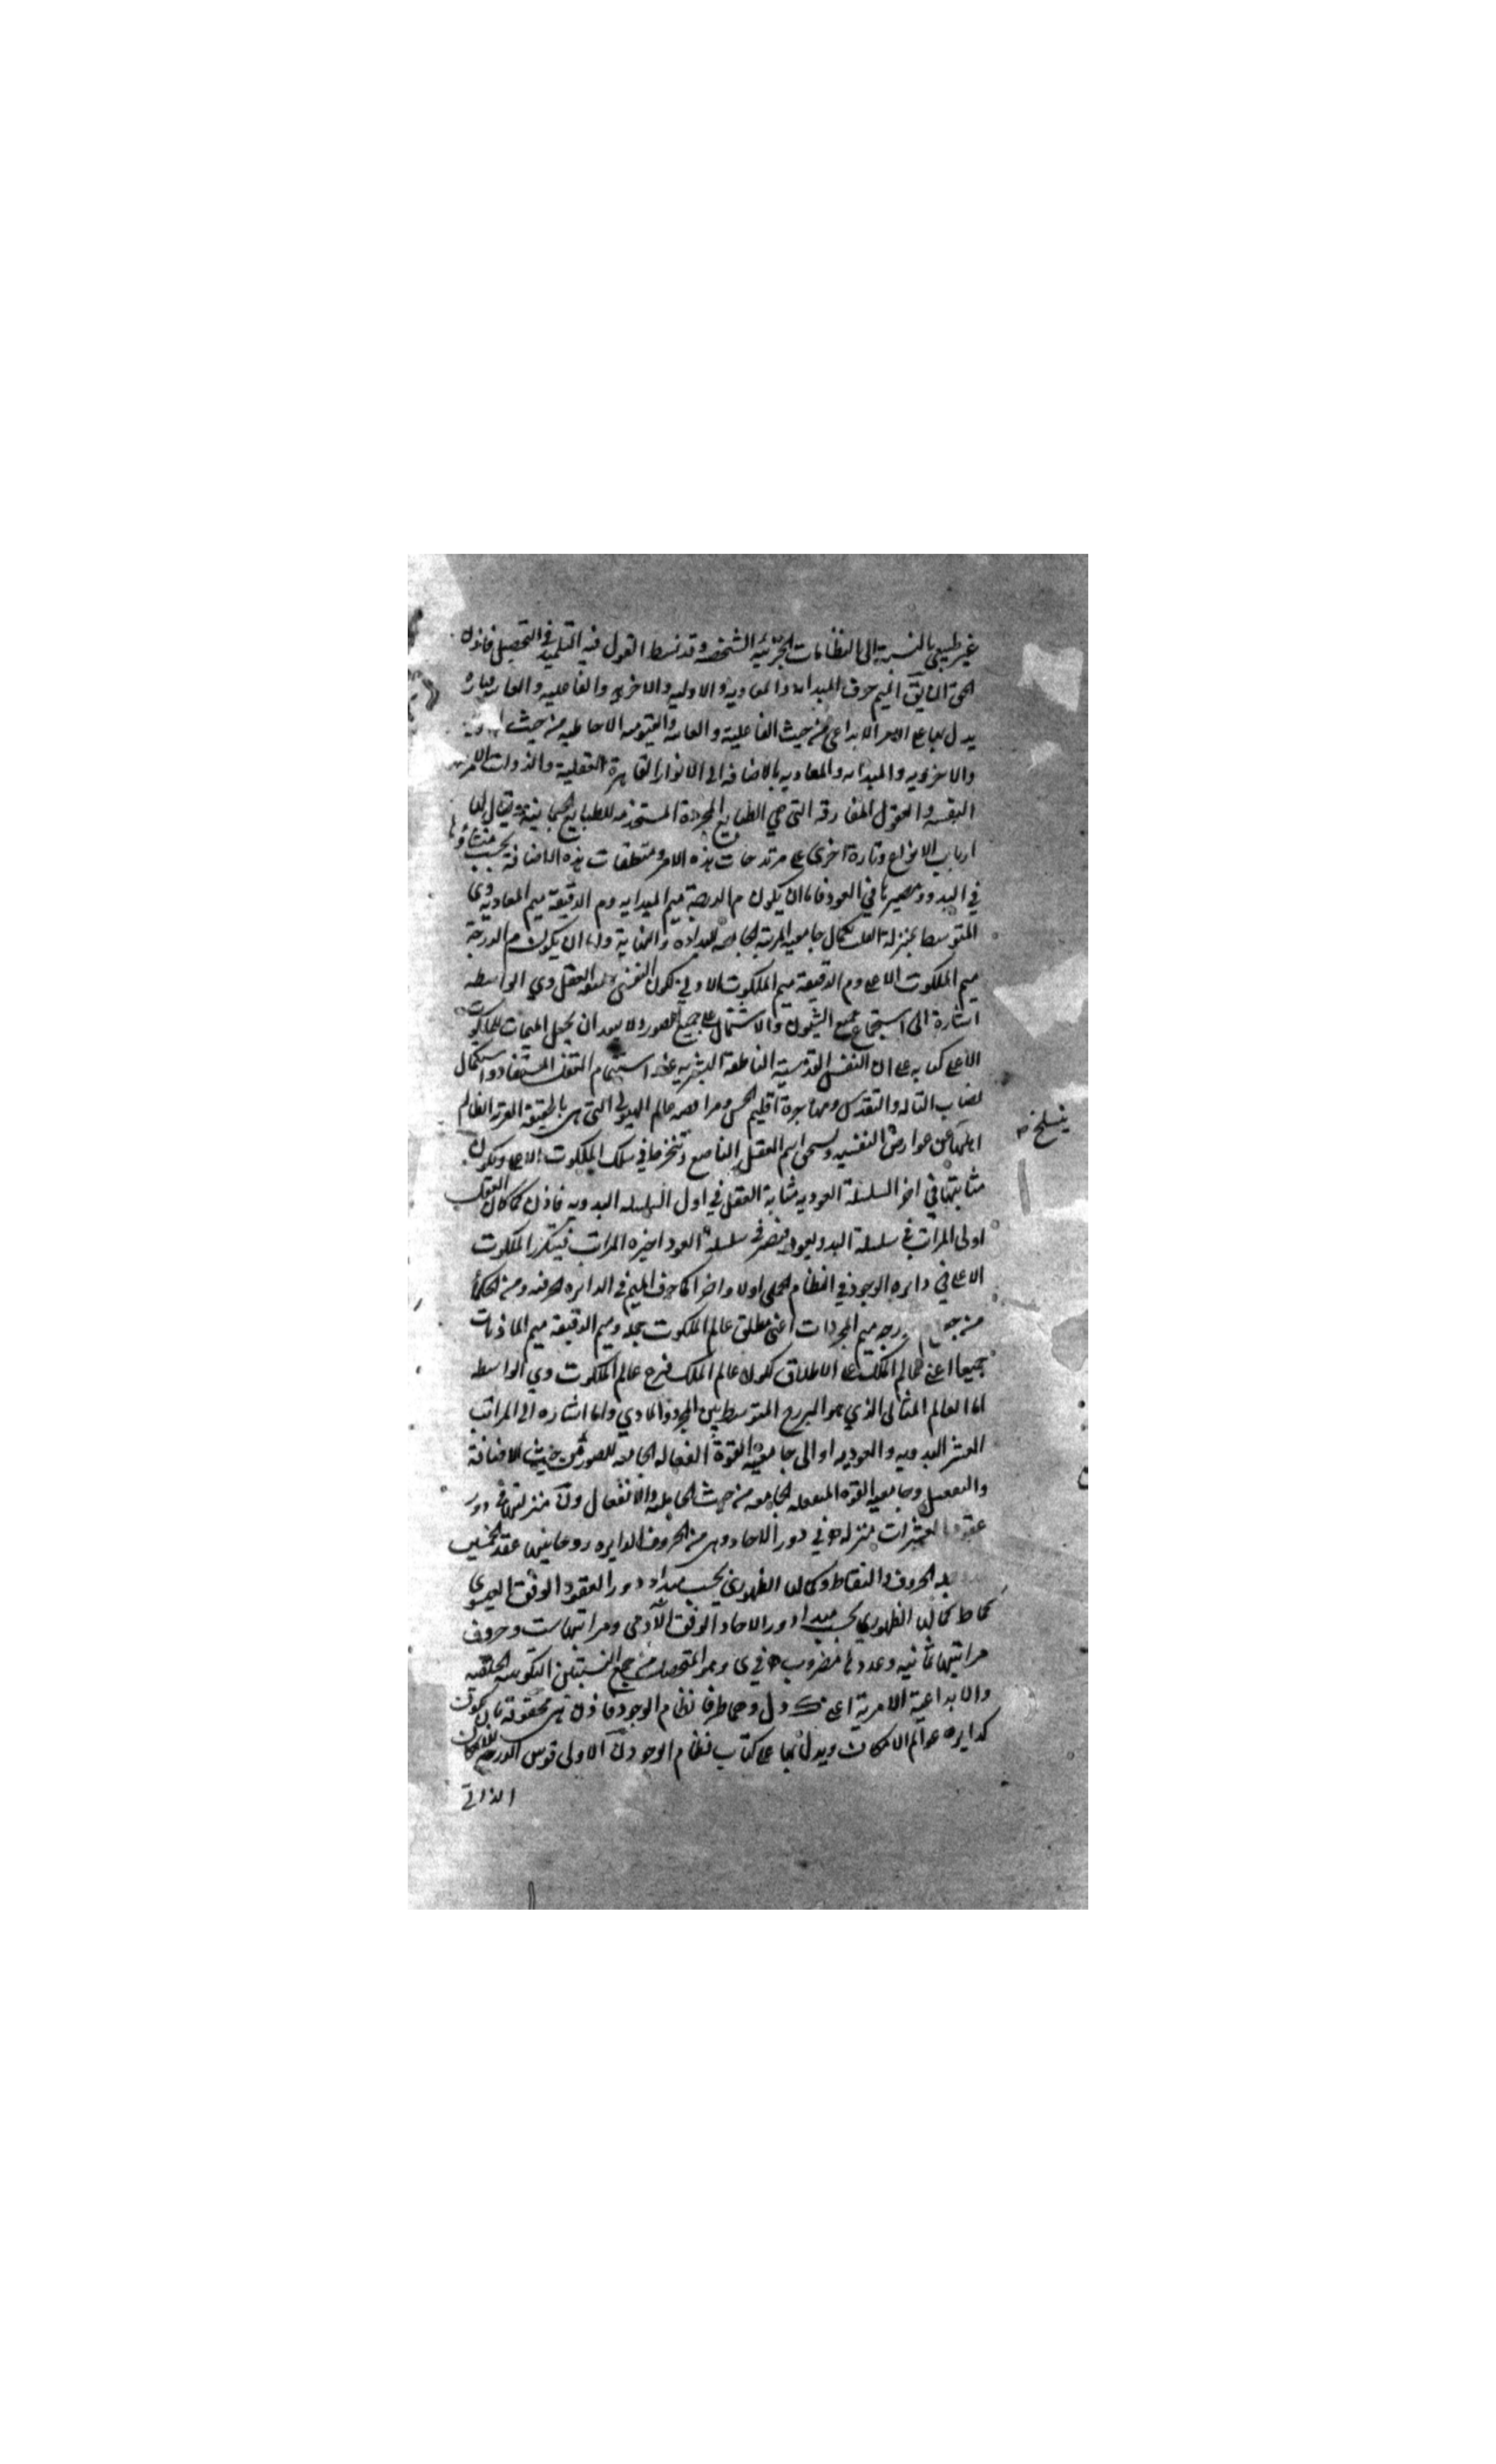 غير طبيعي بالنسبة الى النظامات الجزئية الشخصية وقد نبسط القول فيه التلميذ في التحصيل فاذن
الميم حرف المبدائية والمعادية والاولية والاخرية والفاعلية والغائية فتارة
يدل بها على الامر الابداعي من حيث الفاعلية والغائية والقيومية الاحاطية من حيث
والاخروية والمبدائية والمعادية بالاضافة الى الانوار القاهرة العقلية والذوات الامرية
النفسية والعقول المفارقة التي هي الطبايع المجردة المستخدمة للطبايع الجسمانية ويقال لها
ارباب الانواع وتارة اخرى على مرتدحات هذه الامر ومتعلقات هذه الاضافة بحسب منشاؤها
في البدو ومصيرها في العود فاما ان يكون م الدرجة ميم المبدائية وم الدقيقة ميم المعادية وى
المتوسط بمنزلة الفلك لكمال جامعية المرتبة الجامعة للبداءة والنهاية واما ان يكون م الدرجة
ميم الملكوت الاعلى وم الدقيقة ميم الملكوت الاولى لكون النفس العقل وي الواسطة
اشارة الى استجماع جميع الشئون والاشتمال على جميع الصور ولا يبعد ان يجعل الميمات للملكوت
الاعلى كناية على ان النفس القدسية الناطقة البشرية عند استتمام العقل المستفاد واستكمال
نصاب التاله والتقدس ومهاجرة اقليم الحس ومرافضة عالم الهيولى التي هي بالحقيقة القرية الظالم
اهلها عن عوارض النفسية وتسمى اسم العقل الناصع وتنخرط في سلك الملكوت الاعلى ويكون
ينسلخ صح
مثابتها في اخر السلسلة العودية مثابة العقل في اول السلسلة البدوية فاذن كما كان العقل
اولى المراتب في سلسلة البدو يعود فيصير في سلسلة العود اخيرة المراتب فيتكرر الملكوت
الاعلى في دايرة الوجود في النظام الجملي اولا واخرا كما حرف الميم في الدايرة الحرفية ومن الحكماء
من درجة ميم المجردات اعني مطلق عالم الملكوت جملة وميم الدقيقة ميم الماديات
جميعا اعني عالم الملك على الاطلاق لكون عالم الملك فرع عالم الملكوت وي الواسطة
اما العالم المثالي الذي هو البرزخ المتوسط بين المجرد والمادي واما اشارة الى المراتب
العشر البدوية والعودية او الى جامعية القوة الفعالة الجامعة للصور من حيث الافاضة
والتفعيل وجامعية القوة المنفعلة الجامعة من حيث القابلية والانفعال ون منزلتها في دور
عقود العشرات منزلة ه في دور الاحاد وهي من الحروف الدايرة روحانيتها عقد الخمسين
الحروف والنقاط وكمالها الظهوري بحسب مبداء دور العقود الوفق العيسوى
كما ط كمالها الظهوري بحسب مبداء دور الاحاد الوفق الآدمى ومراتبها ست وحروف
مراتبها ثمانية وعددها مضروب ه في ى وهو المتحصل من جميع النسبتين التكوينية الخلقية
والابداعية الامرية اعنى ك ول وهما طرفا نظام الوجود فاذن هي محقوقة بان تكون
كدايرة عوالم الامكان ويدل بها على كتاب نظام الوجود ن الاولى قوس الدرجة للامكان
الذاتي